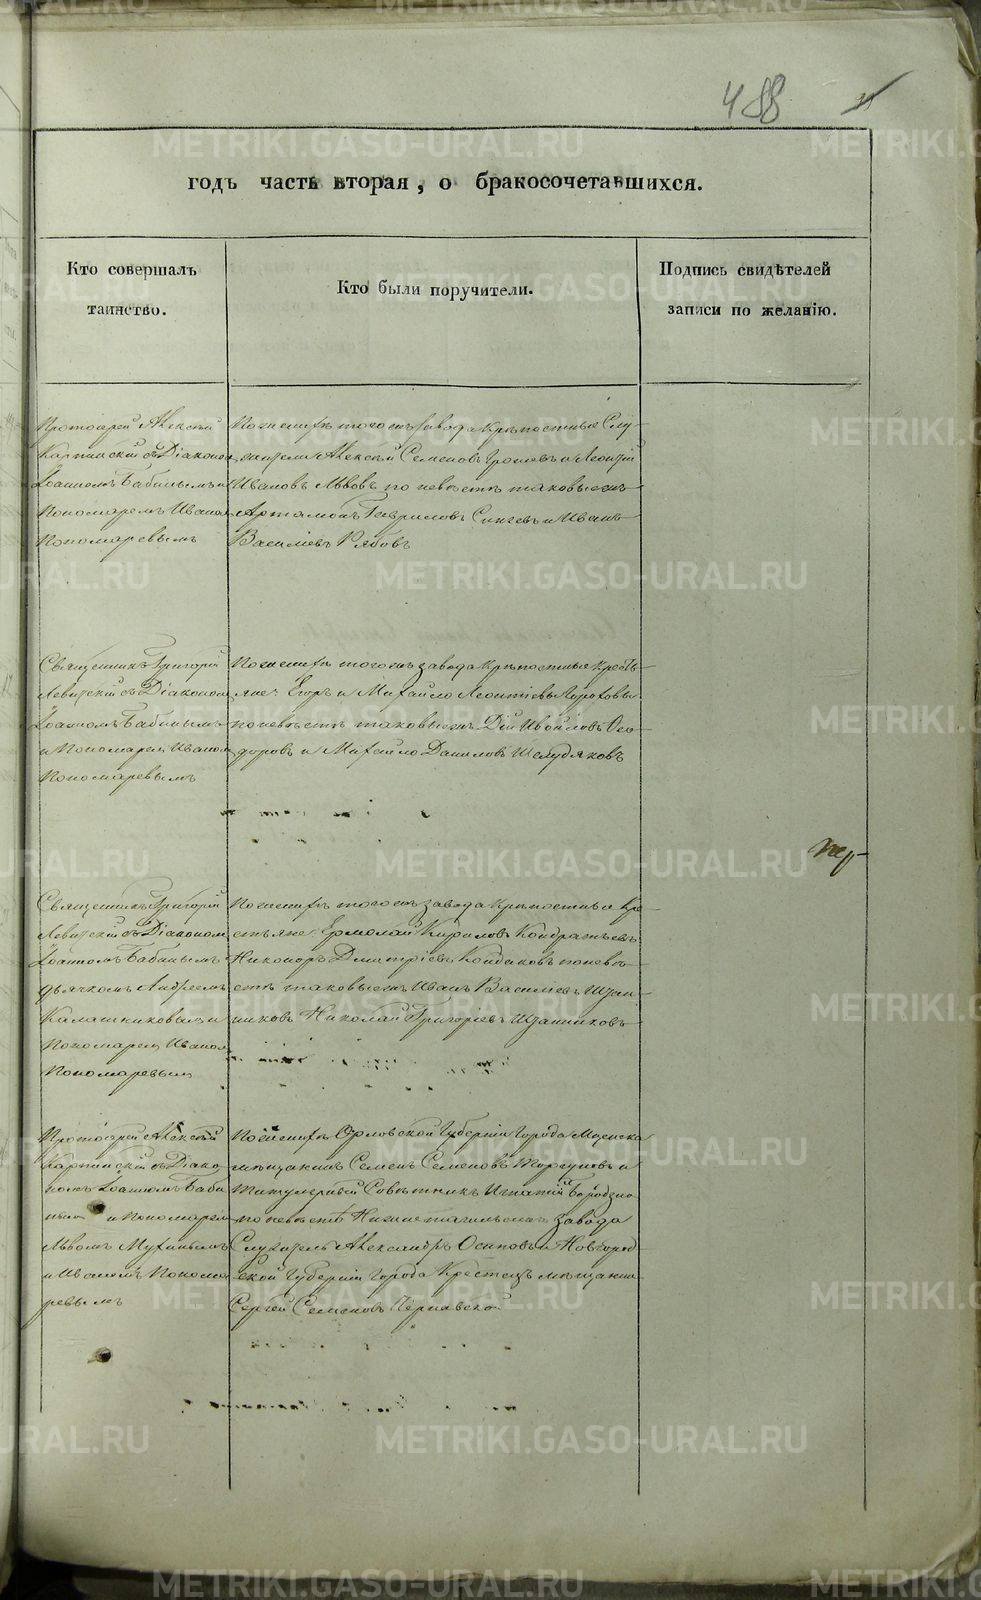 488
годъ часть вторая, о бракосочетавшихся.
Кто совершалъ
таинство.
Кто были поручители.
Подпись свидѣтелей
записи по желанію.
Протоіерей Алексѣй
Карпинскій съ Діакономъ
Іоанномъ Бабинымъ и
Пономаремъ Иваномъ
Пономаревымъ
По женихѣ тогожъ завода крѣпостные Слу-
жители Алексѣй Семеновъ и Леонтій
Ивановъ Львовъ по невѣстѣ таковыежъ
Артамонъ Гавриловъ и Иванъ
Василіевъ Рябовъ
Священникъ Григорій
Левитскій съ Діакономъ
Іоанномъ Бабинымъ
и Пономарем Иваном
Пономаревымъ
По женихѣ тогожъ завода крѣпостные кресть-
яне Егоръ и Михайло Леонтіевы
по невѣстѣ таковыежъ Ѳео-
доровъ и Михайло Даниловъ Шелудяковъ
Священникъ Григорій
Левитскій съ Діакономъ
Іоанномъ Бабинымъ
дьячкомъ Андреемъ
Калашниковым и
Пономарем Иваном
Пономаревым
По женихѣ тогожъ завода крѣпостные кре-
стьяне Ермолай Кириловъ Кондратьевъ
Никоноръ Дмитріевъ по невѣ-
стѣ таковыежъ Иванъ Василіевъ
Николай Григорьевъ
Протоіерей Алексѣй
Карпинскій съ Діако-
номъ Іоанномъ Баби-
нымъ и Пономарем
Львомъ Мухинымъ
и Иваномъ Понома-
ревымъ
По женихѣ Орловской Губерніи Города Мценска
мѣщанинъ Семенъ Семеновъ и
Титулярный Совѣтникъ Игнатій
по невѣстѣ Нижнетагильскаго завода
Служитель Александръ Осиповъ и Новгород-
ской Губерніи Города Крестецъ мѣщанин
Сергей Семеновъ Чернявской